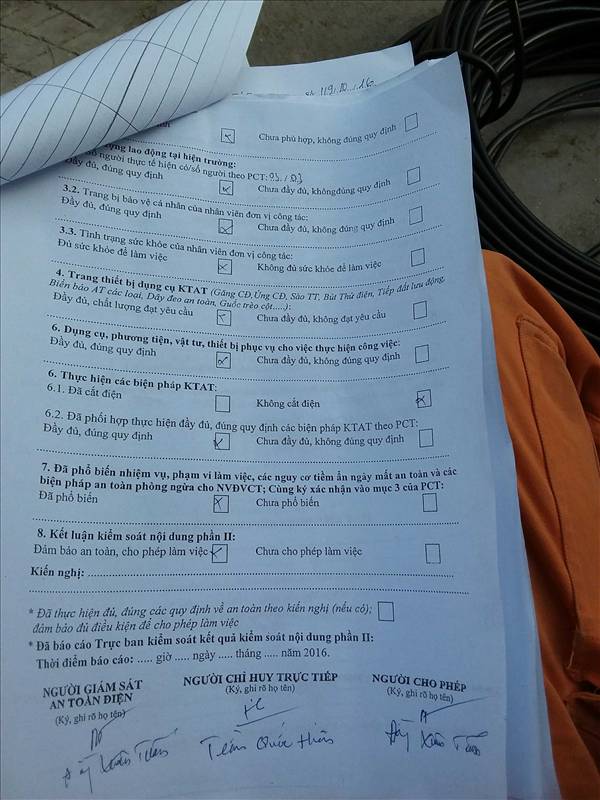 119/10.../16
Chưa phù hợp, không đúng quy định
lao động tại hiện trường:
người thực tế hiện có/số người theo PCT: 03./.03
Đầy đủ, đúng quy định Chưa đầy đủ, khôngđúng quy định
3.2. Trang bị bảo vệ cá nhân của nhân viên đơn vị công tác:
Đầy đủ, đúng quy định Chưa đầy đủ, không đúng quy định
3.3. Tình trạng sức khỏe của nhân viên đơn vị công tác:
Đủ sức khỏe để làm việc Không đủ sức khỏe để làm việc
4. Trang thiết bị dụng cụ KTAT (Găng CĐ,Ủng CĐ, Sào TT, Bút Thử điện, Tiếp đất lưu động,
Biển báo AT các loại, Dây đeo an toàn, Guốc trèo cột.....):
Đầy đủ, chất lượng đạt yêu cầu Chưa đầy đủ, không đạt yêu cầu
6. Dụng cụ, phương tiện, vật tư, thiết bị phục vụ cho việc thực hiện công việc:
Đầy đủ, đúng quy định Chưa đầy đủ, không đúng quy định
6. Thực hiện các biện pháp KTAT:
6.1. Đã cắt điện Không cắt điện
6.2. Đã phối hợp thực hiện đầy đủ, đúng quy định các biện pháp KTAT theo PCT:
Đầy đủ, đúng quy định Chưa đầy đủ, không đúng quy định
7. Đã phổ biến nhiệm vụ, phạm vi làm việc, các nguy cơ tiềm ẩn ngày mất an toàn và các
biện pháp an toàn phòng ngừa cho NVĐVCT; Cùng ký xác nhận vào mục 3 của PCT:
Đã phổ biến Chưa phổ biến
8. Kết luận kiểm soát nội dung phần II:
Đảm bảo an toàn, cho phép làm việc Chưa cho phép làm việc
Kiến nghị:
* Đã thực hiện đủ, đúng các quy định về an toàn theo kiến nghị (nếu có);
đảm bảo đủ điều kiện để cho phép làm việc
* Đã báo cáo Trực ban kiểm soát kết quả kiểm soát nội dung phần II:
Thời điểm báo cáo: ..... giờ ..... ngày ..... tháng ..... năm 2016.
NGƯỜI GIÁM SÁT NGƯỜI CHỈ HUY TRỰC TIẾP NGƯỜI CHO PHÉP
AN TOÀN ĐIỆN (Ký, ghi rõ họ tên) (Ký, ghi rõ họ tên)
(Ký, ghi rõ họ tên)